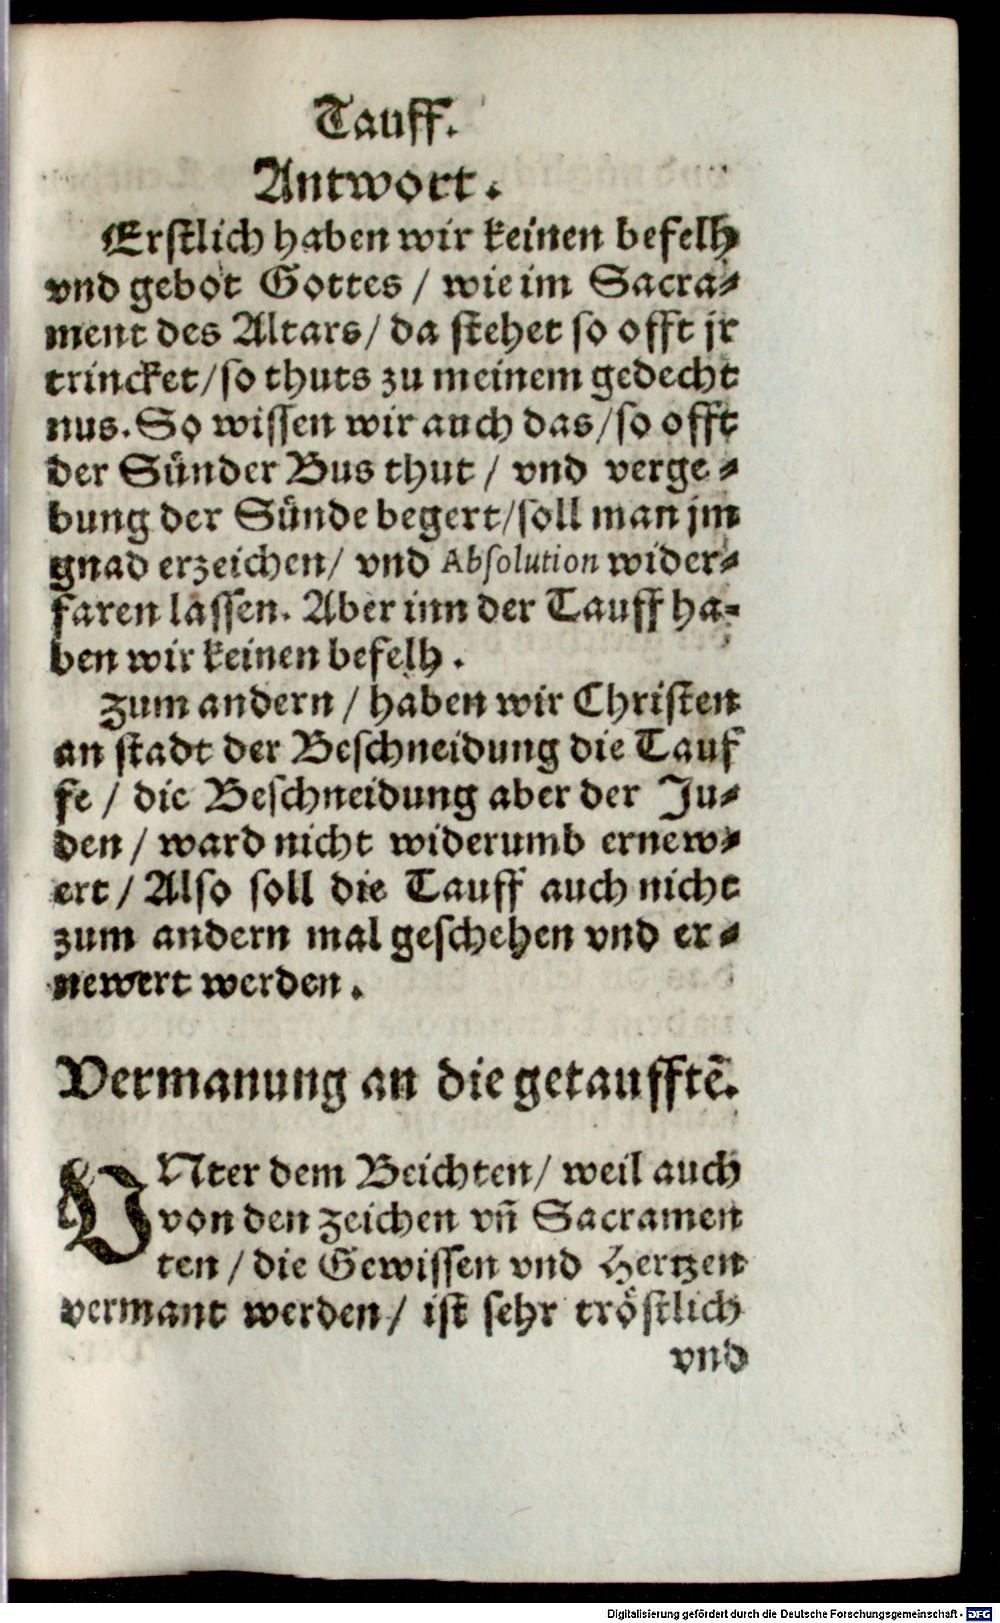 Tauff.
Antwort.
Erstlich haben wir keinen befelh
vnd gebot Gottes / wie im Sacra⸗
ment des Altars/ da stehet so offt jr
trincket/so thuts zu meinem gedecht
nus. So wissen wir auch das/so offt
der Sünder Bus thut / vnd verge⸗
bung der Sünde begert/soll man jm
gnad erzeichen/ vnd Absolution wider⸗
faren lassen. Aber inn der Tauff ha⸗
ben wir keinen befelh.
Zum andern / haben wir Christen
an stadt der Beschneidung die Tauf
fe / die Beschneidung aber der Ju⸗
den / ward nicht widerumb ernew⸗
ert / Also soll die Tauff auch nicht
zum andern mal geschehen vnd er⸗
newert werden.
Vermanung an die getaufftē.
VNter dem Beichten/ weil auch
von den zeichen vn̄ Sacramen
ten / die Gewissen vnd Hertzen
vermant werden / ist sehr tröstlich
vnd
Digitalisierung gefördert durch die Deutsche Forschungsgemeinschaft - DFG